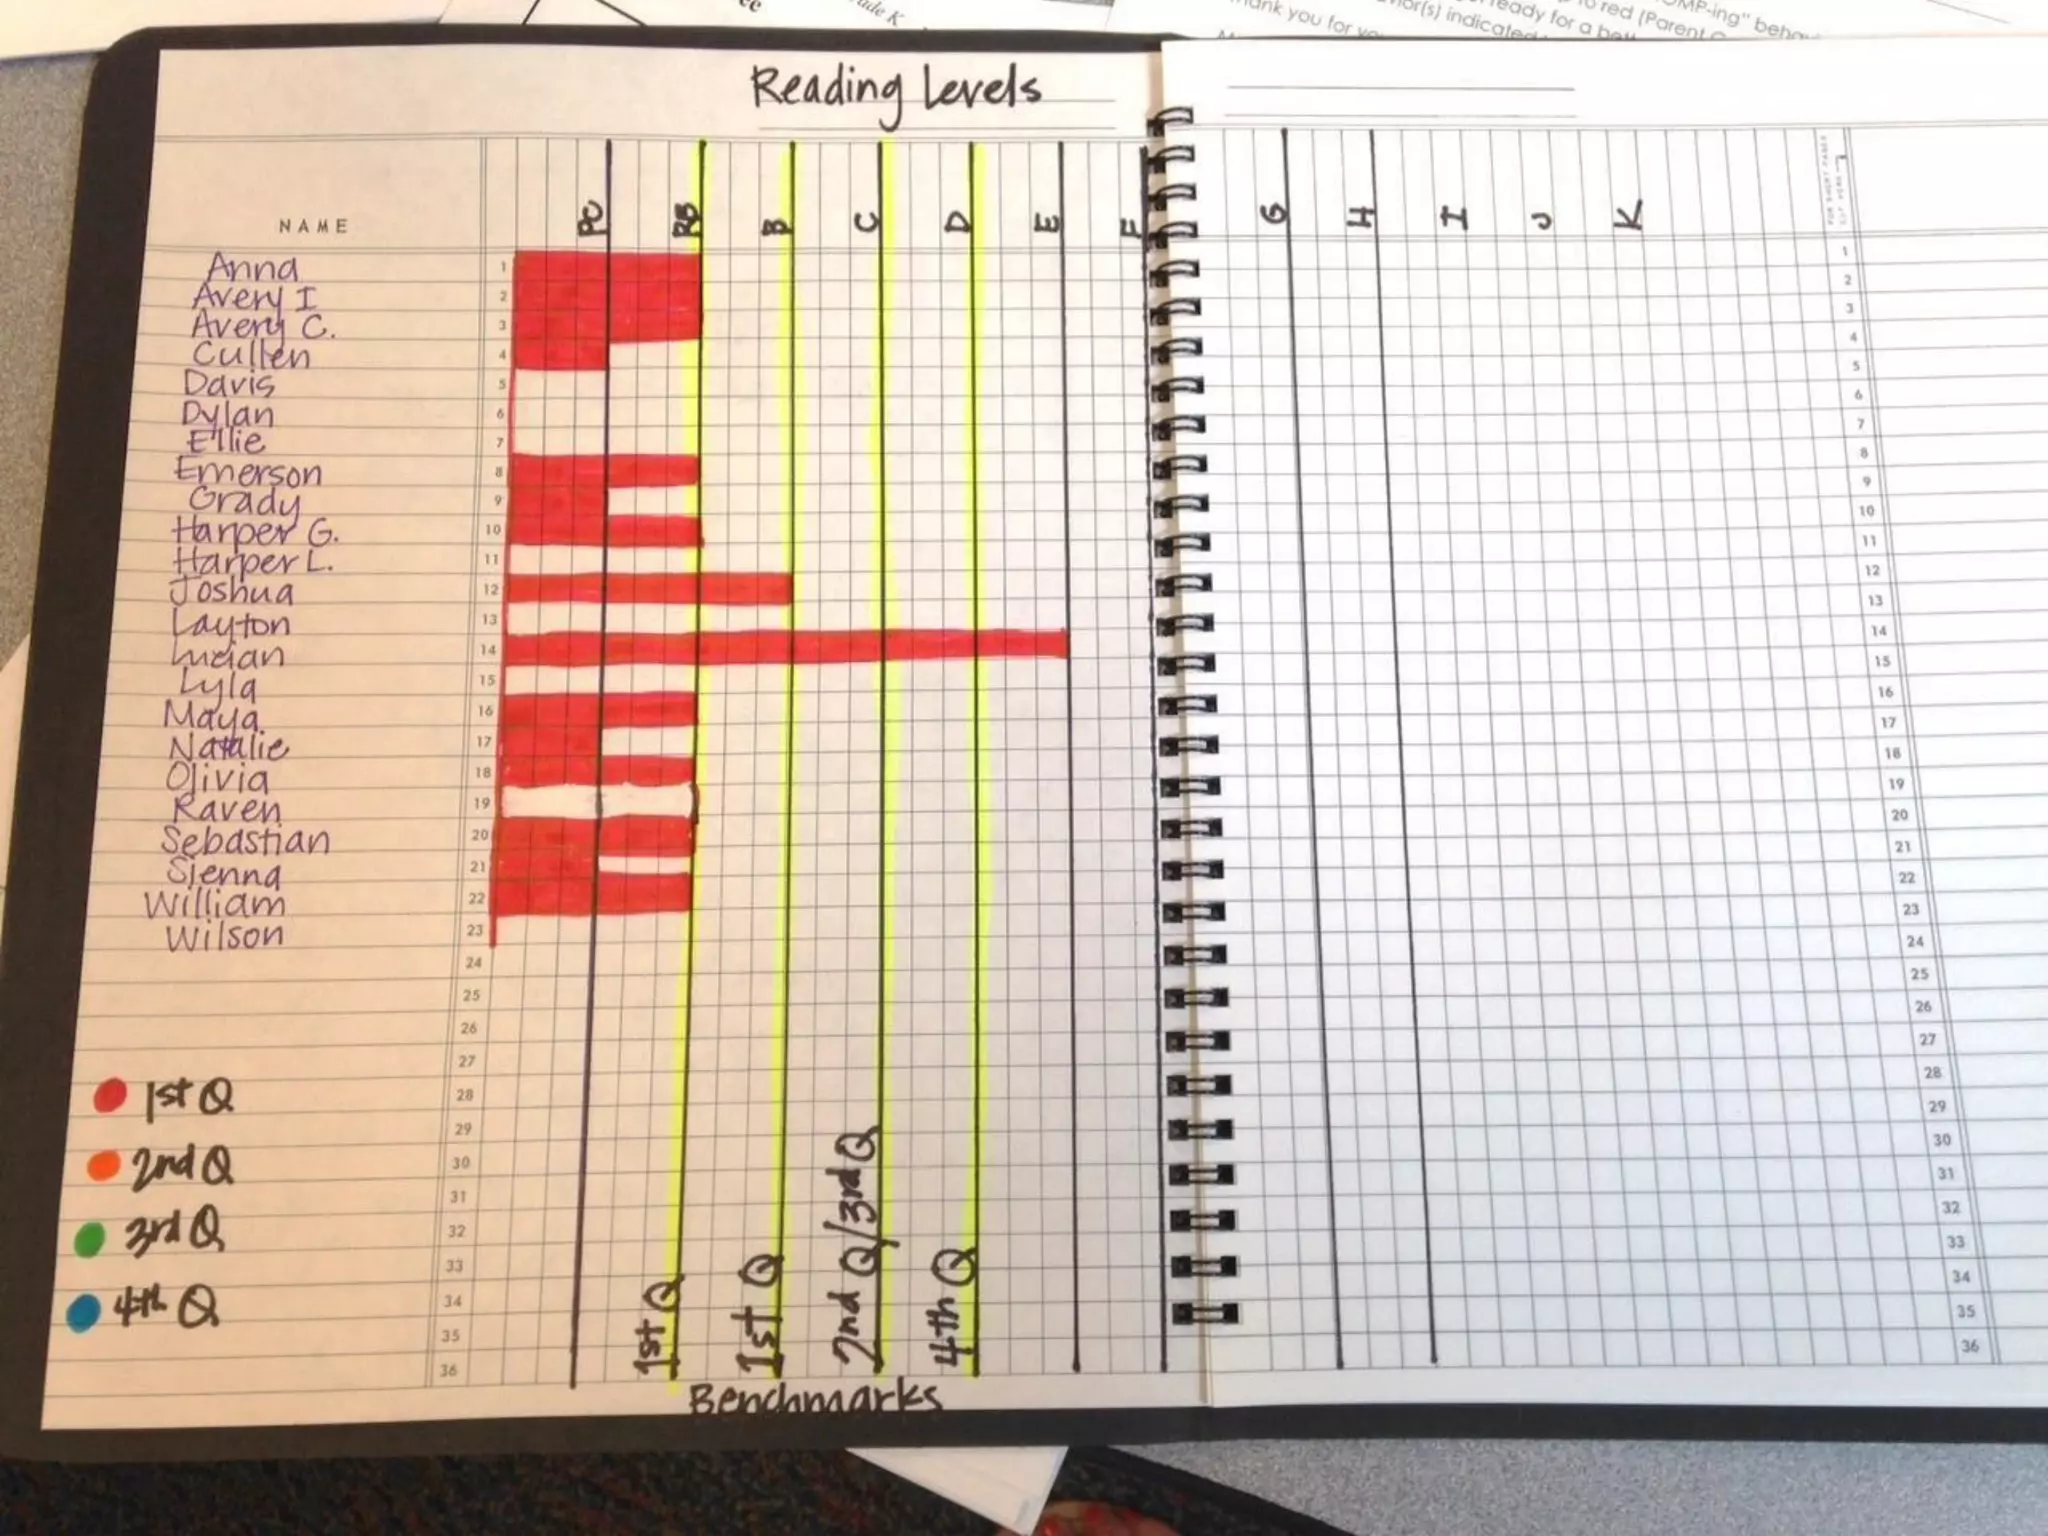 ee
ade K
OMP-ing" behav
to red (Parent
ready for a bett
or(s) indicated
hank you for yo
Reading Levels
NAME
PC RB B C D E F G H I J K
Anna 1 1
Avery I 2 2
Avery C. 3 3
Cullen 4 4
Davis 5 5
Dylan 6 6
Ellie 7 7
Emerson 8 8
Grady 9 9
Harper G. 10 10
Harper L. 11 11
Joshua 12 12
Layton 13 13
Lucian 14 14
Lyla 15 15
Maya 16 16
Natalie 17 17
Olivia 18 18
Raven 19 19
Sebastian 20 20
Sienna 21 21
William 22 22
Wilson 23 23
24 24
25 25
26 26
27 27
1st Q 28 28
29 29
2nd Q 30 30
31 31
3rd Q 32 32
33 33
4th Q 34 34
35 35
36 36
1st Q 1st Q 2nd Q/3rd Q 4th Q
Benchmarks